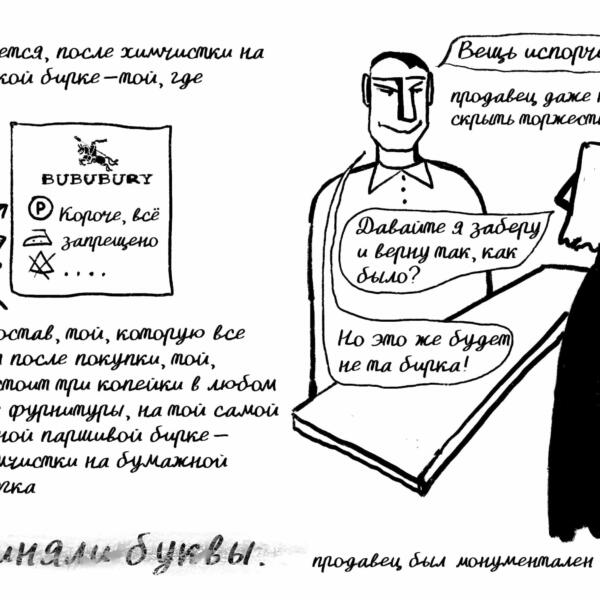 ется, после химчистки на
кой бирке – той, где
BUBUBURY
P Короче, всё
запрещено
. . . .
остав, той, которую все
после покупки, той,
стоит три копейки в любом
фурнитуры, на той самой
ной паршивой бирке –
мчистки на бумажной
линяли буквы.
Вещь испорче
продавец даже н
скрыть торжеств
Давайте я заберу
и верну так, как
было?
Но это же будет
не та бирка!
продавец был монументален